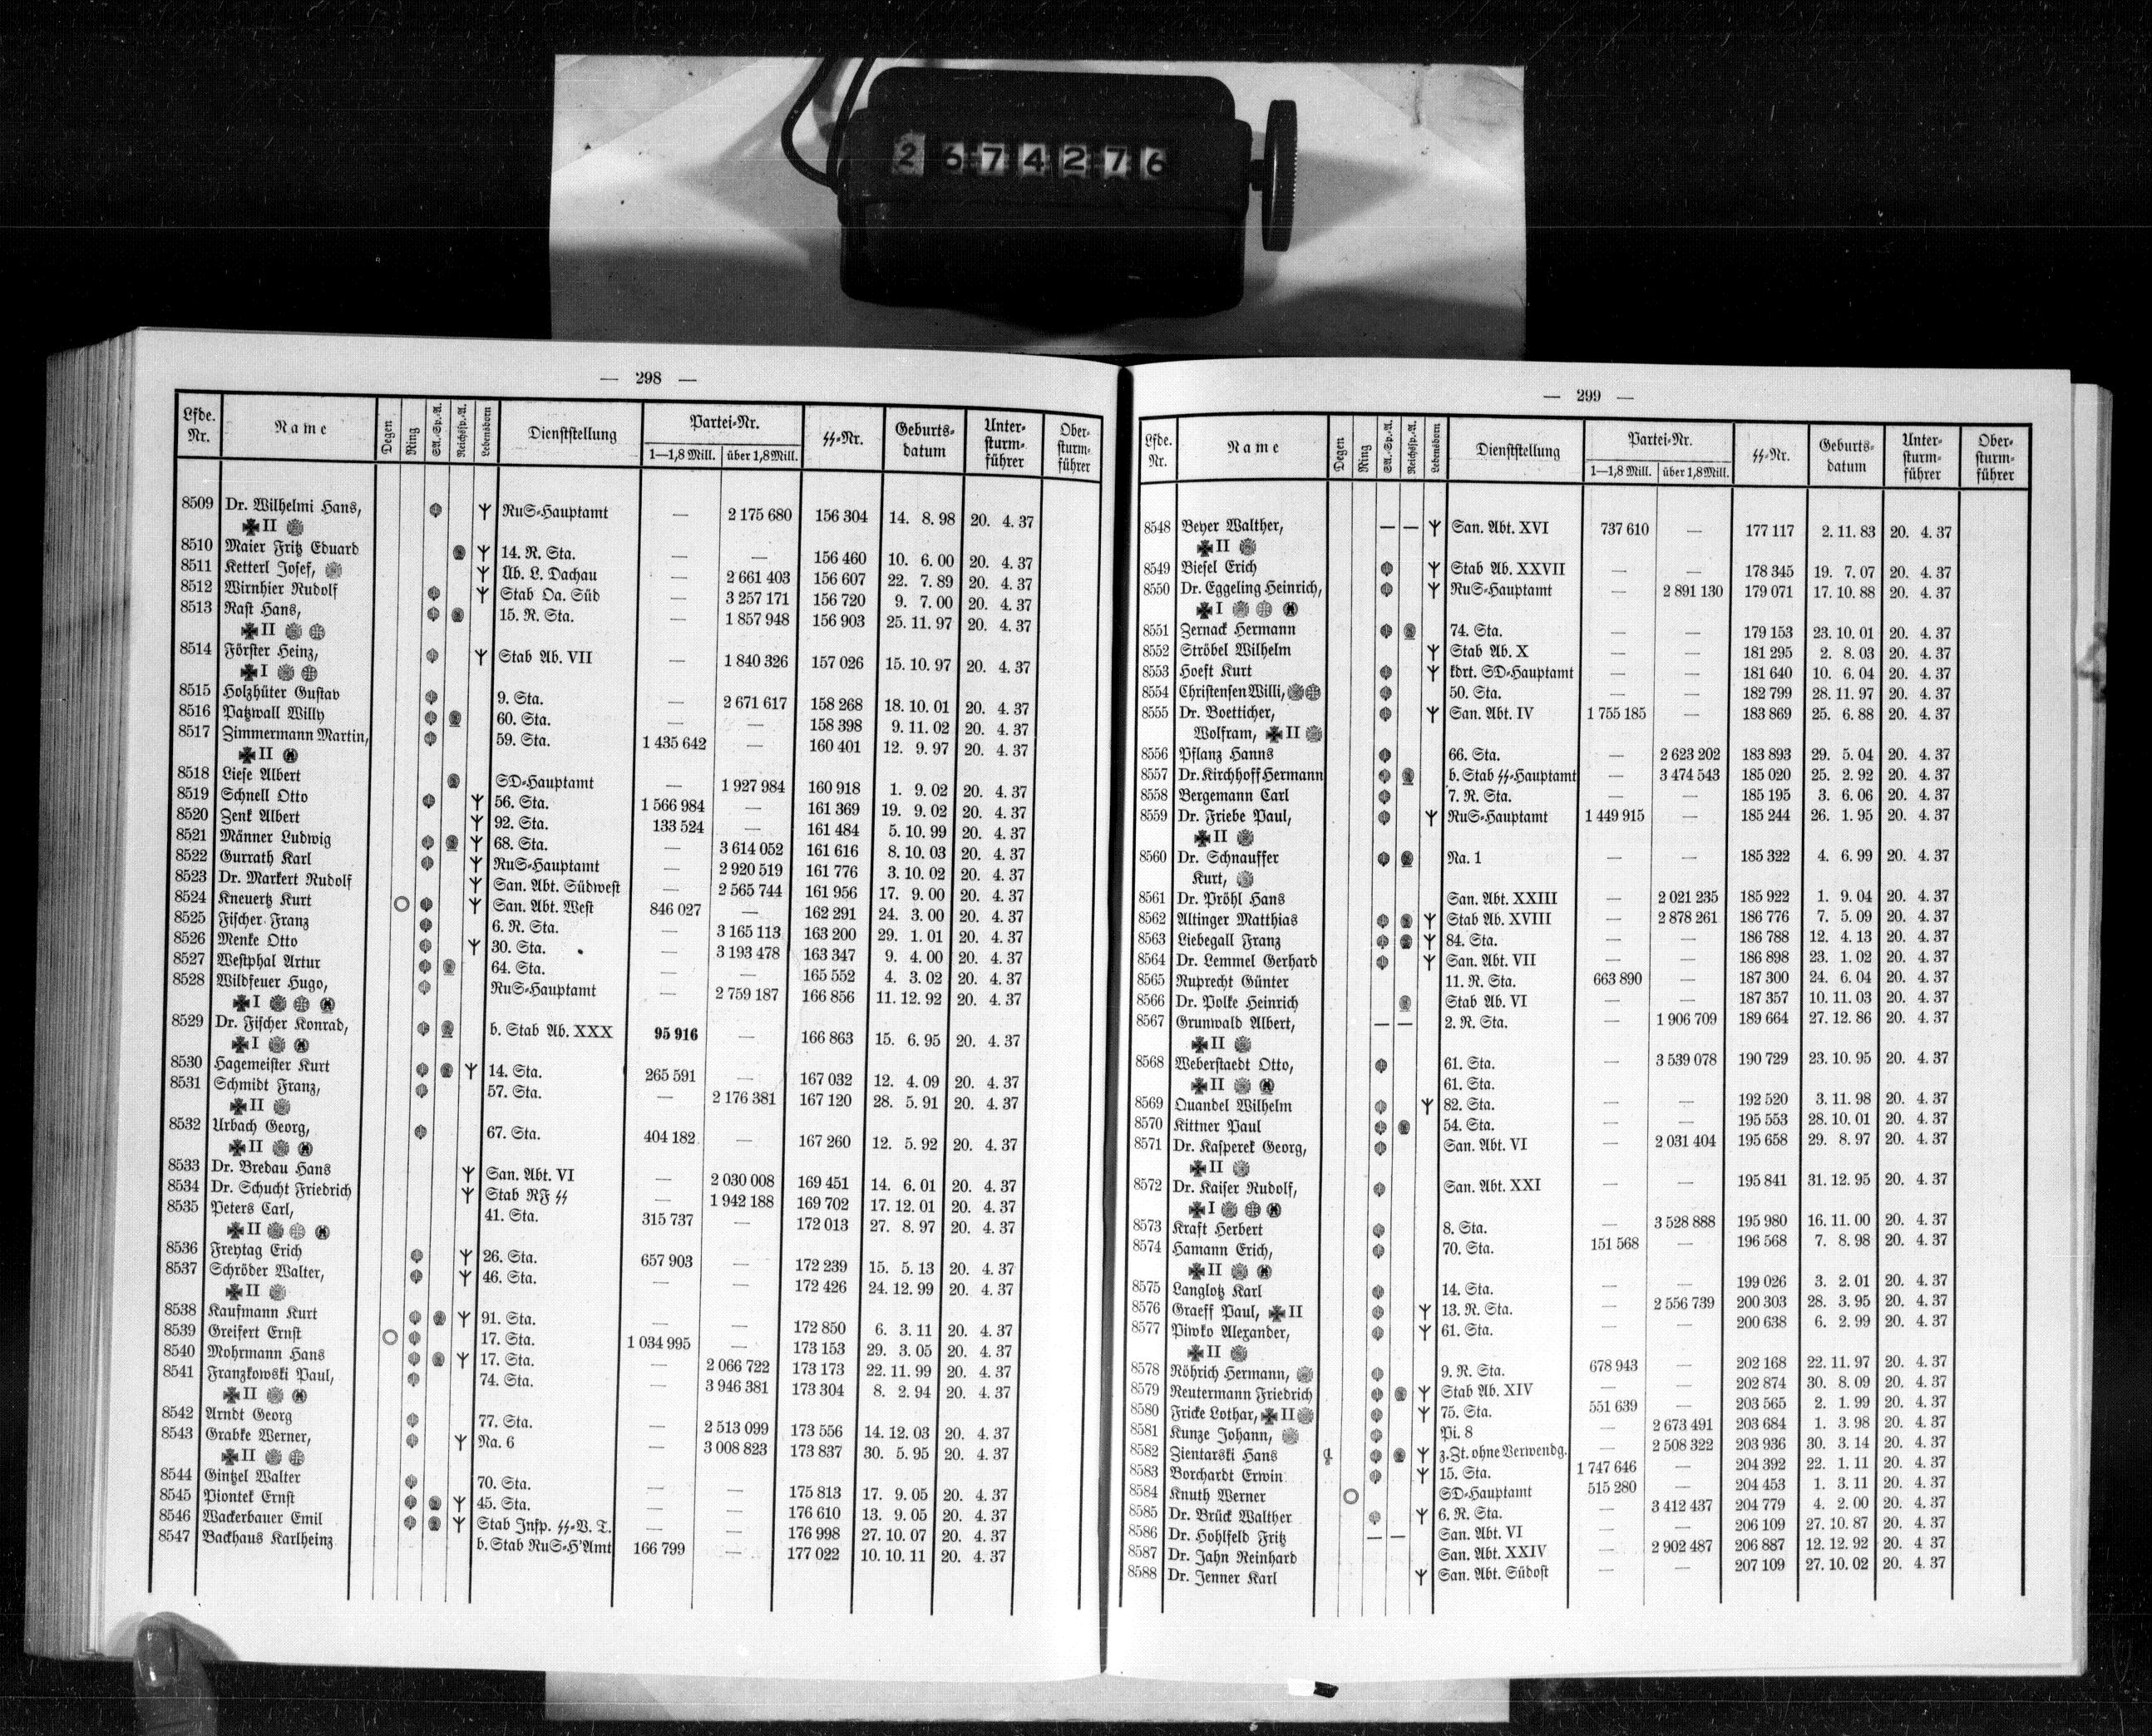 2674276
— 298 —
Lfde. Nr. Name Degen Ring SA.-Sp.-A. Reichssp.-A. Lebensborn Dienststellung Partei-Nr. 1—1,8 Mill. über 1,8 Mill. ᛋᛋ-Nr. Geburts-datum Unter-sturm-führer Ober-sturm-führer
8509 Dr. Wilhelmi Hans, RuS-Hauptamt — 2 175 680 156 304 14. 8. 98 20. 4. 37
II
8510 Maier Fritz Eduard 14. R. Sta. — — 156 460 10. 6. 00 20. 4. 37
8511 Ketterl Josef, Üb. L. Dachau — 2 661 403 156 607 22. 7. 89 20. 4. 37
8512 Wirnhier Rudolf Stab Oa. Süd — 3 257 171 156 720 9. 7. 00 20. 4. 37
8513 Rast Hans, 15. R. Sta. — 1 857 948 156 903 25. 11. 97 20. 4. 37
II
8514 Förster Heinz, Stab Ab. VII — 1 840 326 157 026 15. 10. 97 20. 4. 37
I
8515 Holzhüter Gustav 9. Sta. — 2 671 617 158 268 18. 10. 01 20. 4. 37
8516 Patzwall Willy 60. Sta. — — 158 398 9. 11. 02 20. 4. 37
8517 Zimmermann Martin, 59. Sta. 1 435 642 — 160 401 12. 9. 97 20. 4. 37
II
8518 Liese Albert SD-Hauptamt — 1 927 984 160 918 1. 9. 02 20. 4. 37
8519 Schnell Otto 56. Sta. 1 566 984 — 161 369 19. 9. 02 20. 4. 37
8520 Zenk Albert 92. Sta. 133 524 — 161 484 5. 10. 99 20. 4. 37
8521 Männer Ludwig 68. Sta. — 3 614 052 161 616 8. 10. 03 20. 4. 37
8522 Gurrath Karl RuS-Hauptamt — 2 920 519 161 776 3. 10. 02 20. 4. 37
8523 Dr. Markert Rudolf San. Abt. Südwest — 2 565 744 161 956 17. 9. 00 20. 4. 37
8524 Kneuertz Kurt San. Abt. West 846 027 — 162 291 24. 3. 00 20. 4. 37
8525 Fischer Franz 6. R. Sta. — 3 165 113 163 200 29. 1. 01 20. 4. 37
8526 Menke Otto 30. Sta. — 3 193 478 163 347 9. 4. 00 20. 4. 37
8527 Westphal Artur 64. Sta. — — 165 552 4. 3. 02 20. 4. 37
8528 Wildfeuer Hugo, RuS-Hauptamt — 2 759 187 166 856 11. 12. 92 20. 4. 37
I
8529 Dr. Fischer Konrad, b. Stab Ab. XXX 95 916 — 166 863 15. 6. 95 20. 4. 37
I
8530 Hagemeister Kurt 14. Sta. 265 591 — 167 032 12. 4. 09 20. 4. 37
8531 Schmidt Franz, 57. Sta. — 2 176 381 167 120 28. 5. 91 20. 4. 37
II
8532 Urbach Georg, 67. Sta. 404 182 — 167 260 12. 5. 92 20. 4. 37
II
8533 Dr. Bredau Hans San. Abt. VI — 2 030 008 169 451 14. 6. 01 20. 4. 37
8534 Dr. Schucht Friedrich Stab RF ᛋᛋ — 1 942 188 169 702 17. 12. 01 20. 4. 37
8535 Peters Carl, 41. Sta. 315 737 — 172 013 27. 8. 97 20. 4. 37
II
8536 Freytag Erich 26. Sta. 657 903 — 172 239 15. 5. 13 20. 4. 37
8537 Schröder Walter, 46. Sta. — — 172 426 24. 12. 99 20. 4. 37
II
8538 Kaufmann Kurt 91. Sta. — — 172 850 6. 3. 11 20. 4. 37
8539 Greifert Ernst 17. Sta. 1 034 995 — 173 153 29. 3. 05 20. 4. 37
8540 Mohrmann Hans 17. Sta. — 2 066 722 173 173 22. 11. 99 20. 4. 37
8541 Franzkowski Paul, 74. Sta. — 3 946 381 173 304 8. 2. 94 20. 4. 37
II
8542 Arndt Georg 77. Sta. — 2 513 099 173 556 14. 12. 03 20. 4. 37
8543 Grabke Werner, Na. 6 — 3 008 823 173 837 30. 5. 95 20. 4. 37
II
8544 Gintzel Walter 70. Sta. — — 175 813 17. 9. 05 20. 4. 37
8545 Piontek Ernst 45. Sta. — — 176 610 13. 9. 05 20. 4. 37
8546 Wackerbauer Emil Stab Insp. ᛋᛋ-V. T. — — 176 998 27. 10. 07 20. 4. 37
8547 Backhaus Karlheinz b. Stab RuS-H'Amt 166 799 — 177 022 10. 10. 11 20. 4. 37
— 299 —
Lfde. Nr. Name Degen Ring SA.-Sp.-A. Reichssp.-A. Lebensborn Dienststellung Partei-Nr. 1—1,8 Mill. über 1,8 Mill. ᛋᛋ-Nr. Geburts-datum Unter-sturm-führer Ober-sturm-führer
8548 Beyer Walther, — — San. Abt. XVI 737 610 — 177 117 2. 11. 83 20. 4. 37
II
8549 Biesel Erich Stab Ab. XXVII — — 178 345 19. 7. 07 20. 4. 37
8550 Dr. Eggeling Heinrich, RuS-Hauptamt — 2 891 130 179 071 17. 10. 88 20. 4. 37
I
8551 Zernack Hermann 74. Sta. — — 179 153 23. 10. 01 20. 4. 37
8552 Ströbel Wilhelm Stab Ab. X — — 181 295 2. 8. 03 20. 4. 37
8553 Hoeft Kurt kdrt. SD-Hauptamt — — 181 640 10. 6. 04 20. 4. 37
8554 Christensen Willi, 50. Sta. — — 182 799 28. 11. 97 20. 4. 37
8555 Dr. Boetticher, San. Abt. IV 1 755 185 — 183 869 25. 6. 88 20. 4. 37
Wolfram, II
8556 Pflanz Hanns 66. Sta. — 2 623 202 183 893 29. 5. 04 20. 4. 37
8557 Dr. Kirchhoff Hermann b. Stab ᛋᛋ-Hauptamt — 3 474 543 185 020 25. 2. 92 20. 4. 37
8558 Bergemann Carl 7. R. Sta. — — 185 195 3. 6. 06 20. 4. 37
8559 Dr. Friebe Paul, RuS-Hauptamt 1 449 915 — 185 244 26. 1. 95 20. 4. 37
II
8560 Dr. Schnauffer Na. 1 — — 185 322 4. 6. 99 20. 4. 37
Kurt,
8561 Dr. Pröhl Hans San. Abt. XXIII — 2 021 235 185 922 1. 9. 04 20. 4. 37
8562 Altinger Matthias Stab Ab. XVIII — 2 878 261 186 776 7. 5. 09 20. 4. 37
8563 Liebegall Franz 84. Sta. — — 186 788 12. 4. 13 20. 4. 37
8564 Dr. Lemmel Gerhard San. Abt. VII — — 186 898 23. 1. 02 20. 4. 37
8565 Ruprecht Günter 11. R. Sta. 663 890 — 187 300 24. 6. 04 20. 4. 37
8566 Dr. Polke Heinrich Stab Ab. VI — — 187 357 10. 11. 03 20. 4. 37
8567 Grunwald Albert, — — 2. R. Sta. — 1 906 709 189 664 27. 12. 86 20. 4. 37
II
8568 Weberstaedt Otto, 61. Sta. — 3 539 078 190 729 23. 10. 95 20. 4. 37
II 61. Sta.
8569 Quandel Wilhelm 82. Sta. — — 192 520 3. 11. 98 20. 4. 37
8570 Kittner Paul 54. Sta. — — 195 553 28. 10. 01 20. 4. 37
8571 Dr. Kasperek Georg, San. Abt. VI — 2 031 404 195 658 29. 8. 97 20. 4. 37
II
8572 Dr. Kaiser Rudolf, San. Abt. XXI — — 195 841 31. 12. 95 20. 4. 37
I
8573 Kraft Herbert 8. Sta. — 3 528 888 195 980 16. 11. 00 20. 4. 37
8574 Hamann Erich, 70. Sta. 151 568 — 196 568 7. 8. 98 20. 4. 37
II
8575 Langlotz Karl 14. Sta. — — 199 026 3. 2. 01 20. 4. 37
8576 Graeff Paul, II 13. R. Sta. — 2 556 739 200 303 28. 3. 95 20. 4. 37
8577 Piwko Alexander, 61. Sta. — — 200 638 6. 2. 99 20. 4. 37
II
8578 Röhrich Hermann, 9. R. Sta. 678 943 — 202 168 22. 11. 97 20. 4. 37
8579 Reutermann Friedrich Stab Ab. XIV — — 202 874 30. 8. 09 20. 4. 37
8580 Fricke Lothar, II 75. Sta. 551 639 — 203 565 2. 1. 99 20. 4. 37
8581 Kunze Johann, Pi. 8 — 2 673 491 203 684 1. 3. 98 20. 4. 37
8582 Zientarski Hans z. Zt. ohne Verwendg. — 2 508 322 203 936 30. 3. 14 20. 4. 37
8583 Borchardt Erwin 15. Sta. 1 747 646 — 204 392 22. 1. 11 20. 4. 37
8584 Knuth Werner SD-Hauptamt 515 280 — 204 453 1. 3. 11 20. 4. 37
8585 Dr. Brück Walther 6. R. Sta. — 3 412 437 204 779 4. 2. 00 20. 4. 37
8586 Dr. Hohlfeld Fritz — — San. Abt. VI — — 206 109 27. 10. 87 20. 4. 37
8587 Dr. Jahn Reinhard San. Abt. XXIV — 2 902 487 206 887 12. 12. 92 20. 4 37
8588 Dr. Jenner Karl San. Abt. Südost — — 207 109 27. 10. 02 20. 4. 37